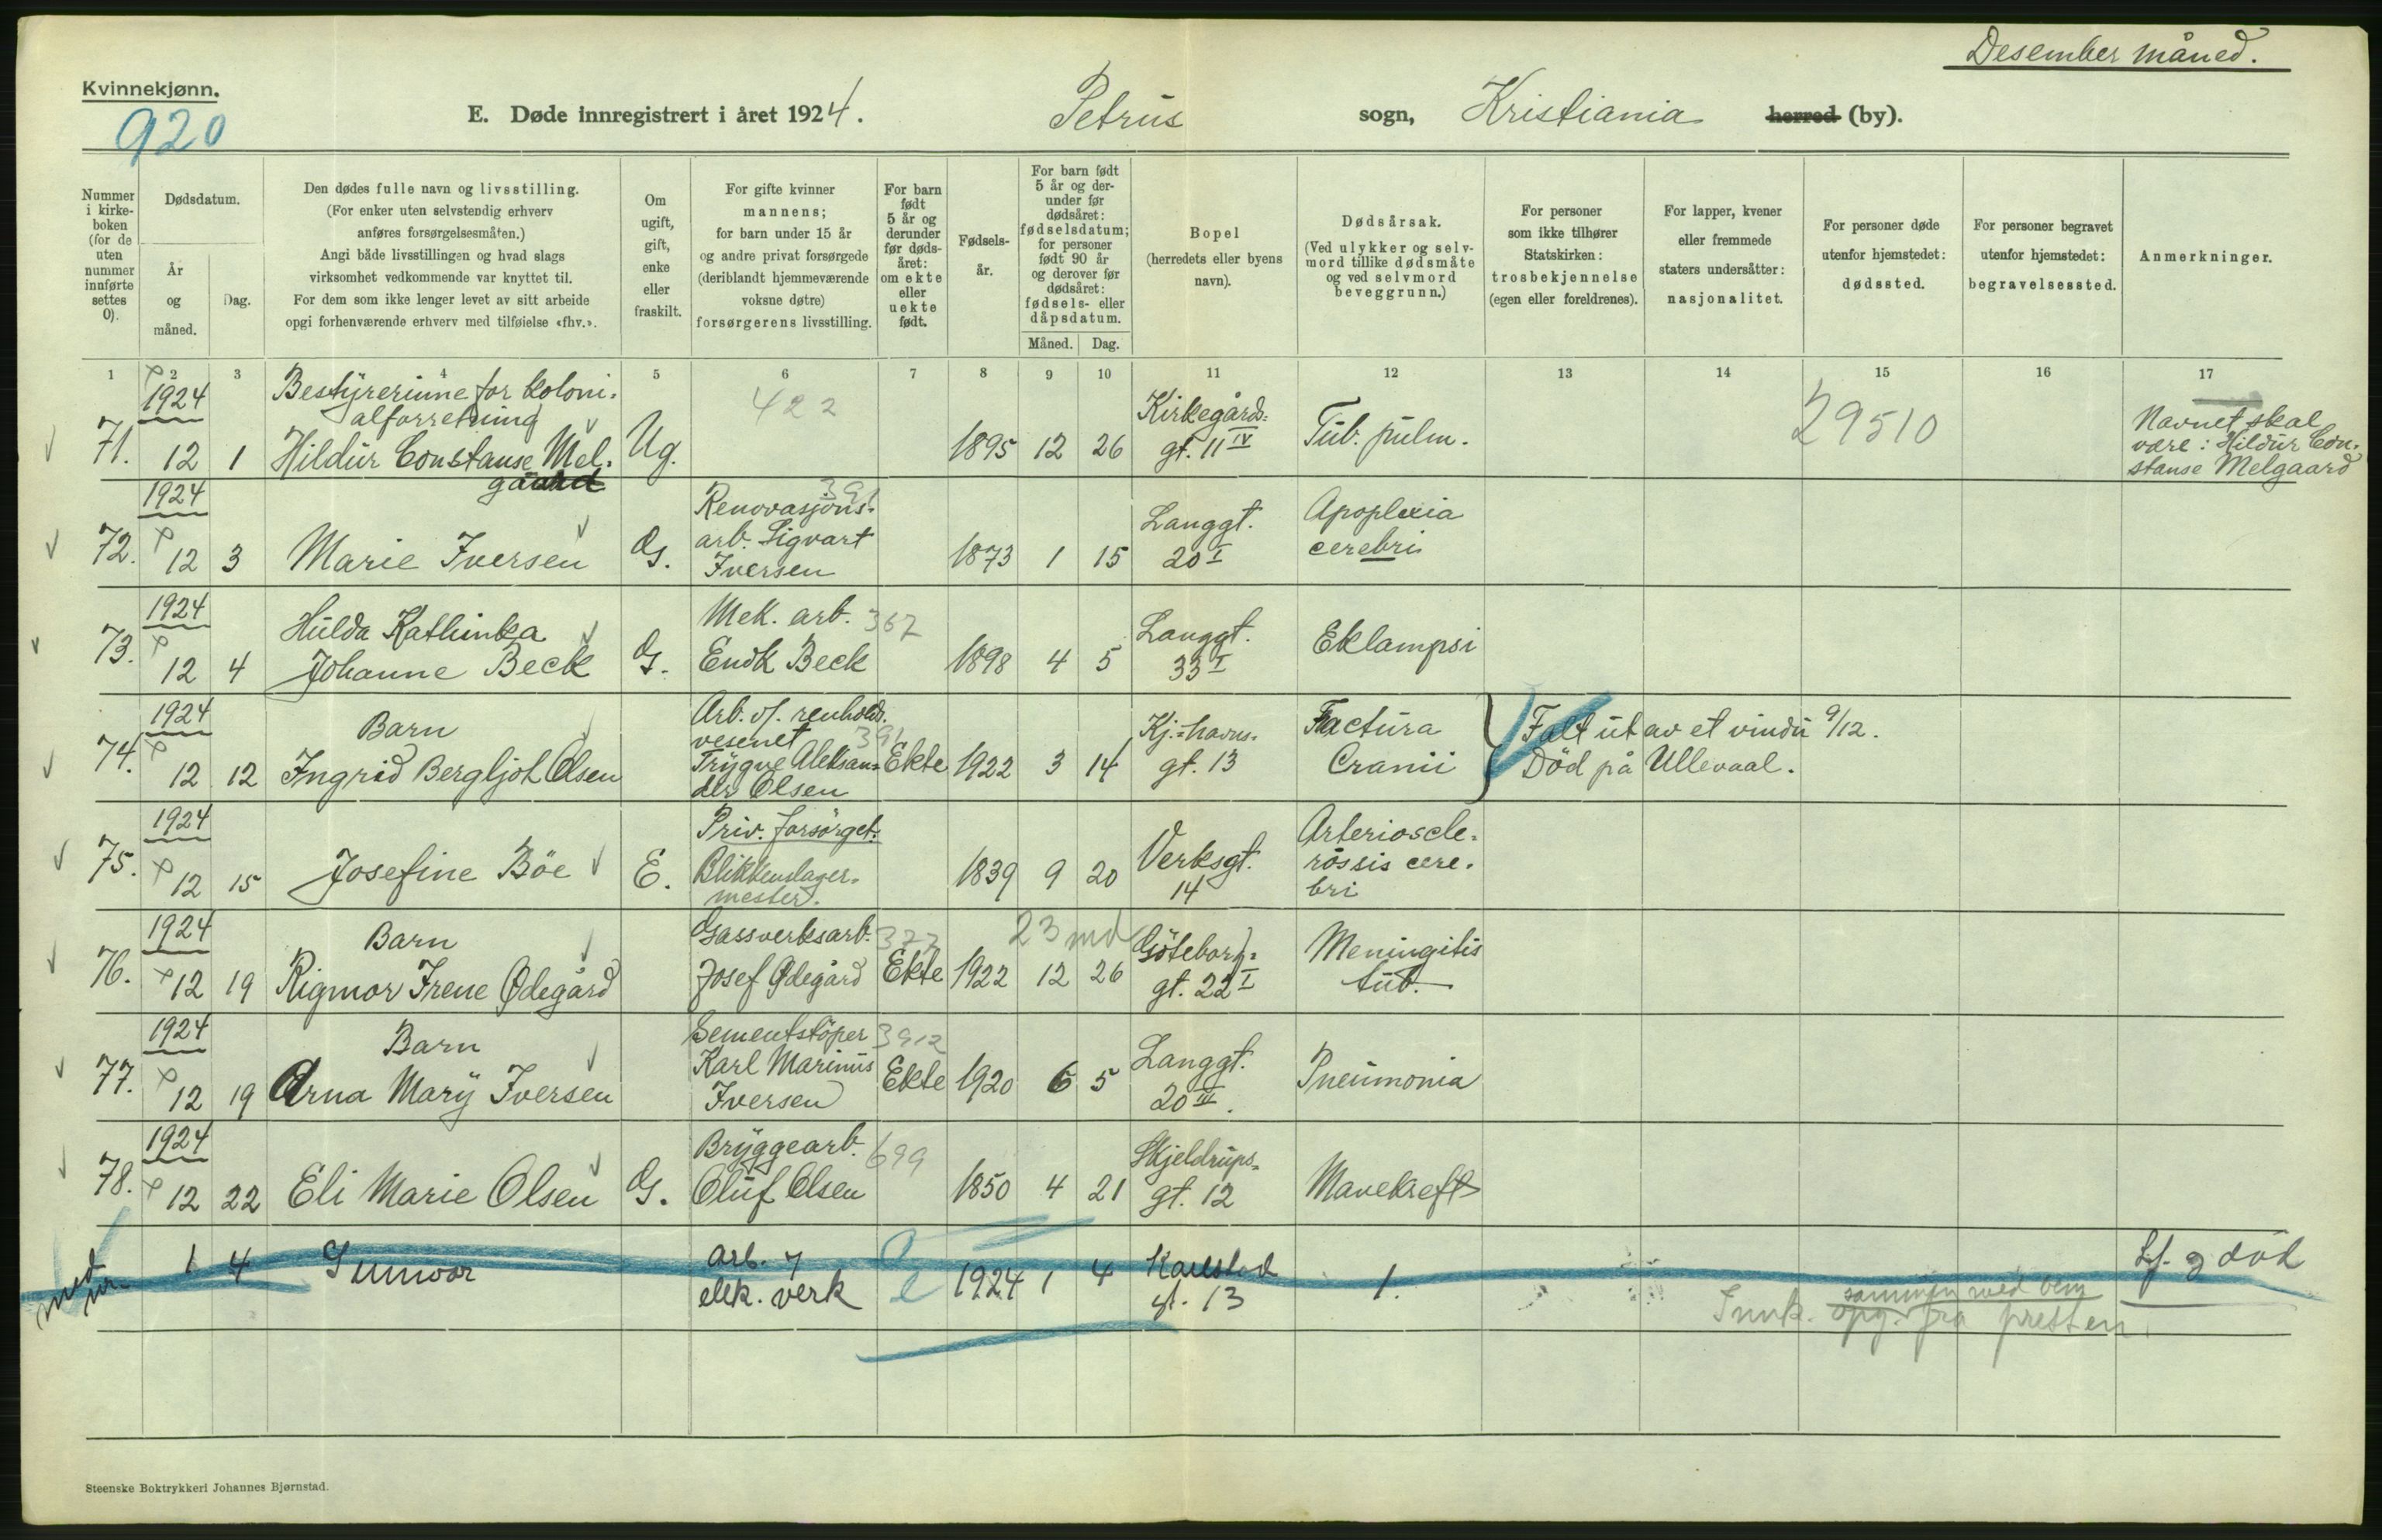 Desember måned.
Kvinnekjønn.
920
E. Døde innregistrert i året 1924.
Petrus sogn, Kristiania herred (by).
Nummer i kirke-boken (for de uten nummer innførte settes 0).
Dødsdatum.
År og måned.
Dag.
Den dødes fulle navn og livsstilling.
(For enker uten selvstendig erhverv
anføres forsørgelsesmåten.)
Angi både livsstillingen og hvad slags
virksomhet vedkommende var knyttet til.
For dem som ikke lenger levet av sitt arbeide
opgi forhenværende erhverv med tilføielse «fhv.».
Om ugift, gift, enke eller fraskilt.
For gifte kvinner
mannens;
for barn under 15 år
og andre privat forsørgede
(deriblandt hjemmeværende
voksne døtre)
forsørgerens livsstilling.
For barn født 5 år og derunder før døds-året: om ekte eller uekte født.
Fødsels-år.
For barn født 5 år og der-under før dødsåret: fødselsdatum; for personer født 90 år og derover før dødsåret: fødsels- eller dåpsdatum.
Måned. Dag.
Bopel
(herredets eller byens
navn).
Dødsårsak.
(Ved ulykker og selv-
mord tillike dødsmåte
og ved selvmord
beveggrunn.)
For personer
som ikke tilhører
Statskirken:
trosbekjennelse
(egen eller foreldrenes).
For lapper, kvener
eller fremmede
staters undersåtter:
nasjonalitet.
For personer døde
utenfor hjemstedet:
dødssted.
For personer begravet
utenfor hjemstedet:
begravelsessted.
Anmerkninger.
1 2 3 4 5 6 7 8 9 10 11 12 13 14 15 16 17
1924
71. 12 1
Bestyrerinne for koloni-
alforretning
Hildur Constanse Mel-
gaard
Ug.
422
1895 12 26
Kirkegårds-
gt. 11 IV
Tub. pulm.
29510
Navnet skal
være: Hildur Con-
stanse Melgaard
1924
72. 12 3
Marie Iversen
G.
391
Renovasjons-
arb. Sigvart
Iversen
1873 1 15
Langgt.
20 I
Apoplexia
cerebri
1924
73. 12 4
Hulda Kathinka
Johanne Beck
G.
Mek. arb. 367
Endk Beck
1898 4 5
Langgt.
33 I
Eklampsi
1924
74. 12 12
Barn
Ingrid Bergljot Olsen
Arb. v/. renholds-
vesenet 391
Trygve Aleksan-
der Olsen
Ekte 1922 3 14
Kj.-havns-
gt. 13
Factura
Cranii
Falt ut av et vindu 9/12.
Död på Ullevaal.
1924
75. 12 15
Josefine Böe
E.
Priv. forsörget.
Blikkenslager-
mester.
1839 9 20
Verksgt.
14
Arterioscle-
rossis cere-
bri
1924
76. 12 19
Barn
Rigmor Irene Ødegård
Gassverksarb. 377
Josef Ødegård
Ekte 1922 12 26
23 md
Göteborg-
gt. 22 I
Meningitis
tub.
1924
77. 12 19
Barn
Arna Mary Iversen
Sementstöper 3912
Karl Marinus
Iversen
Ekte 1920 6 5
Langgt.
20 III.
Pneumonia
1924
78. 12 22
Eli Marie Olsen
G.
Bryggearb. 699
Oluf Olsen
1850 4 21
Skjeldrups-
gt. 12
Mavekreft
1 4
Gunvor
arb. v
elek. verk
e 1924 1 4
Karlstad
gt. 13
1.
Lf. g död
sammen med dem
Innk. opg. fra presten.
Steenske Boktrykkeri Johannes Bjørnstad.